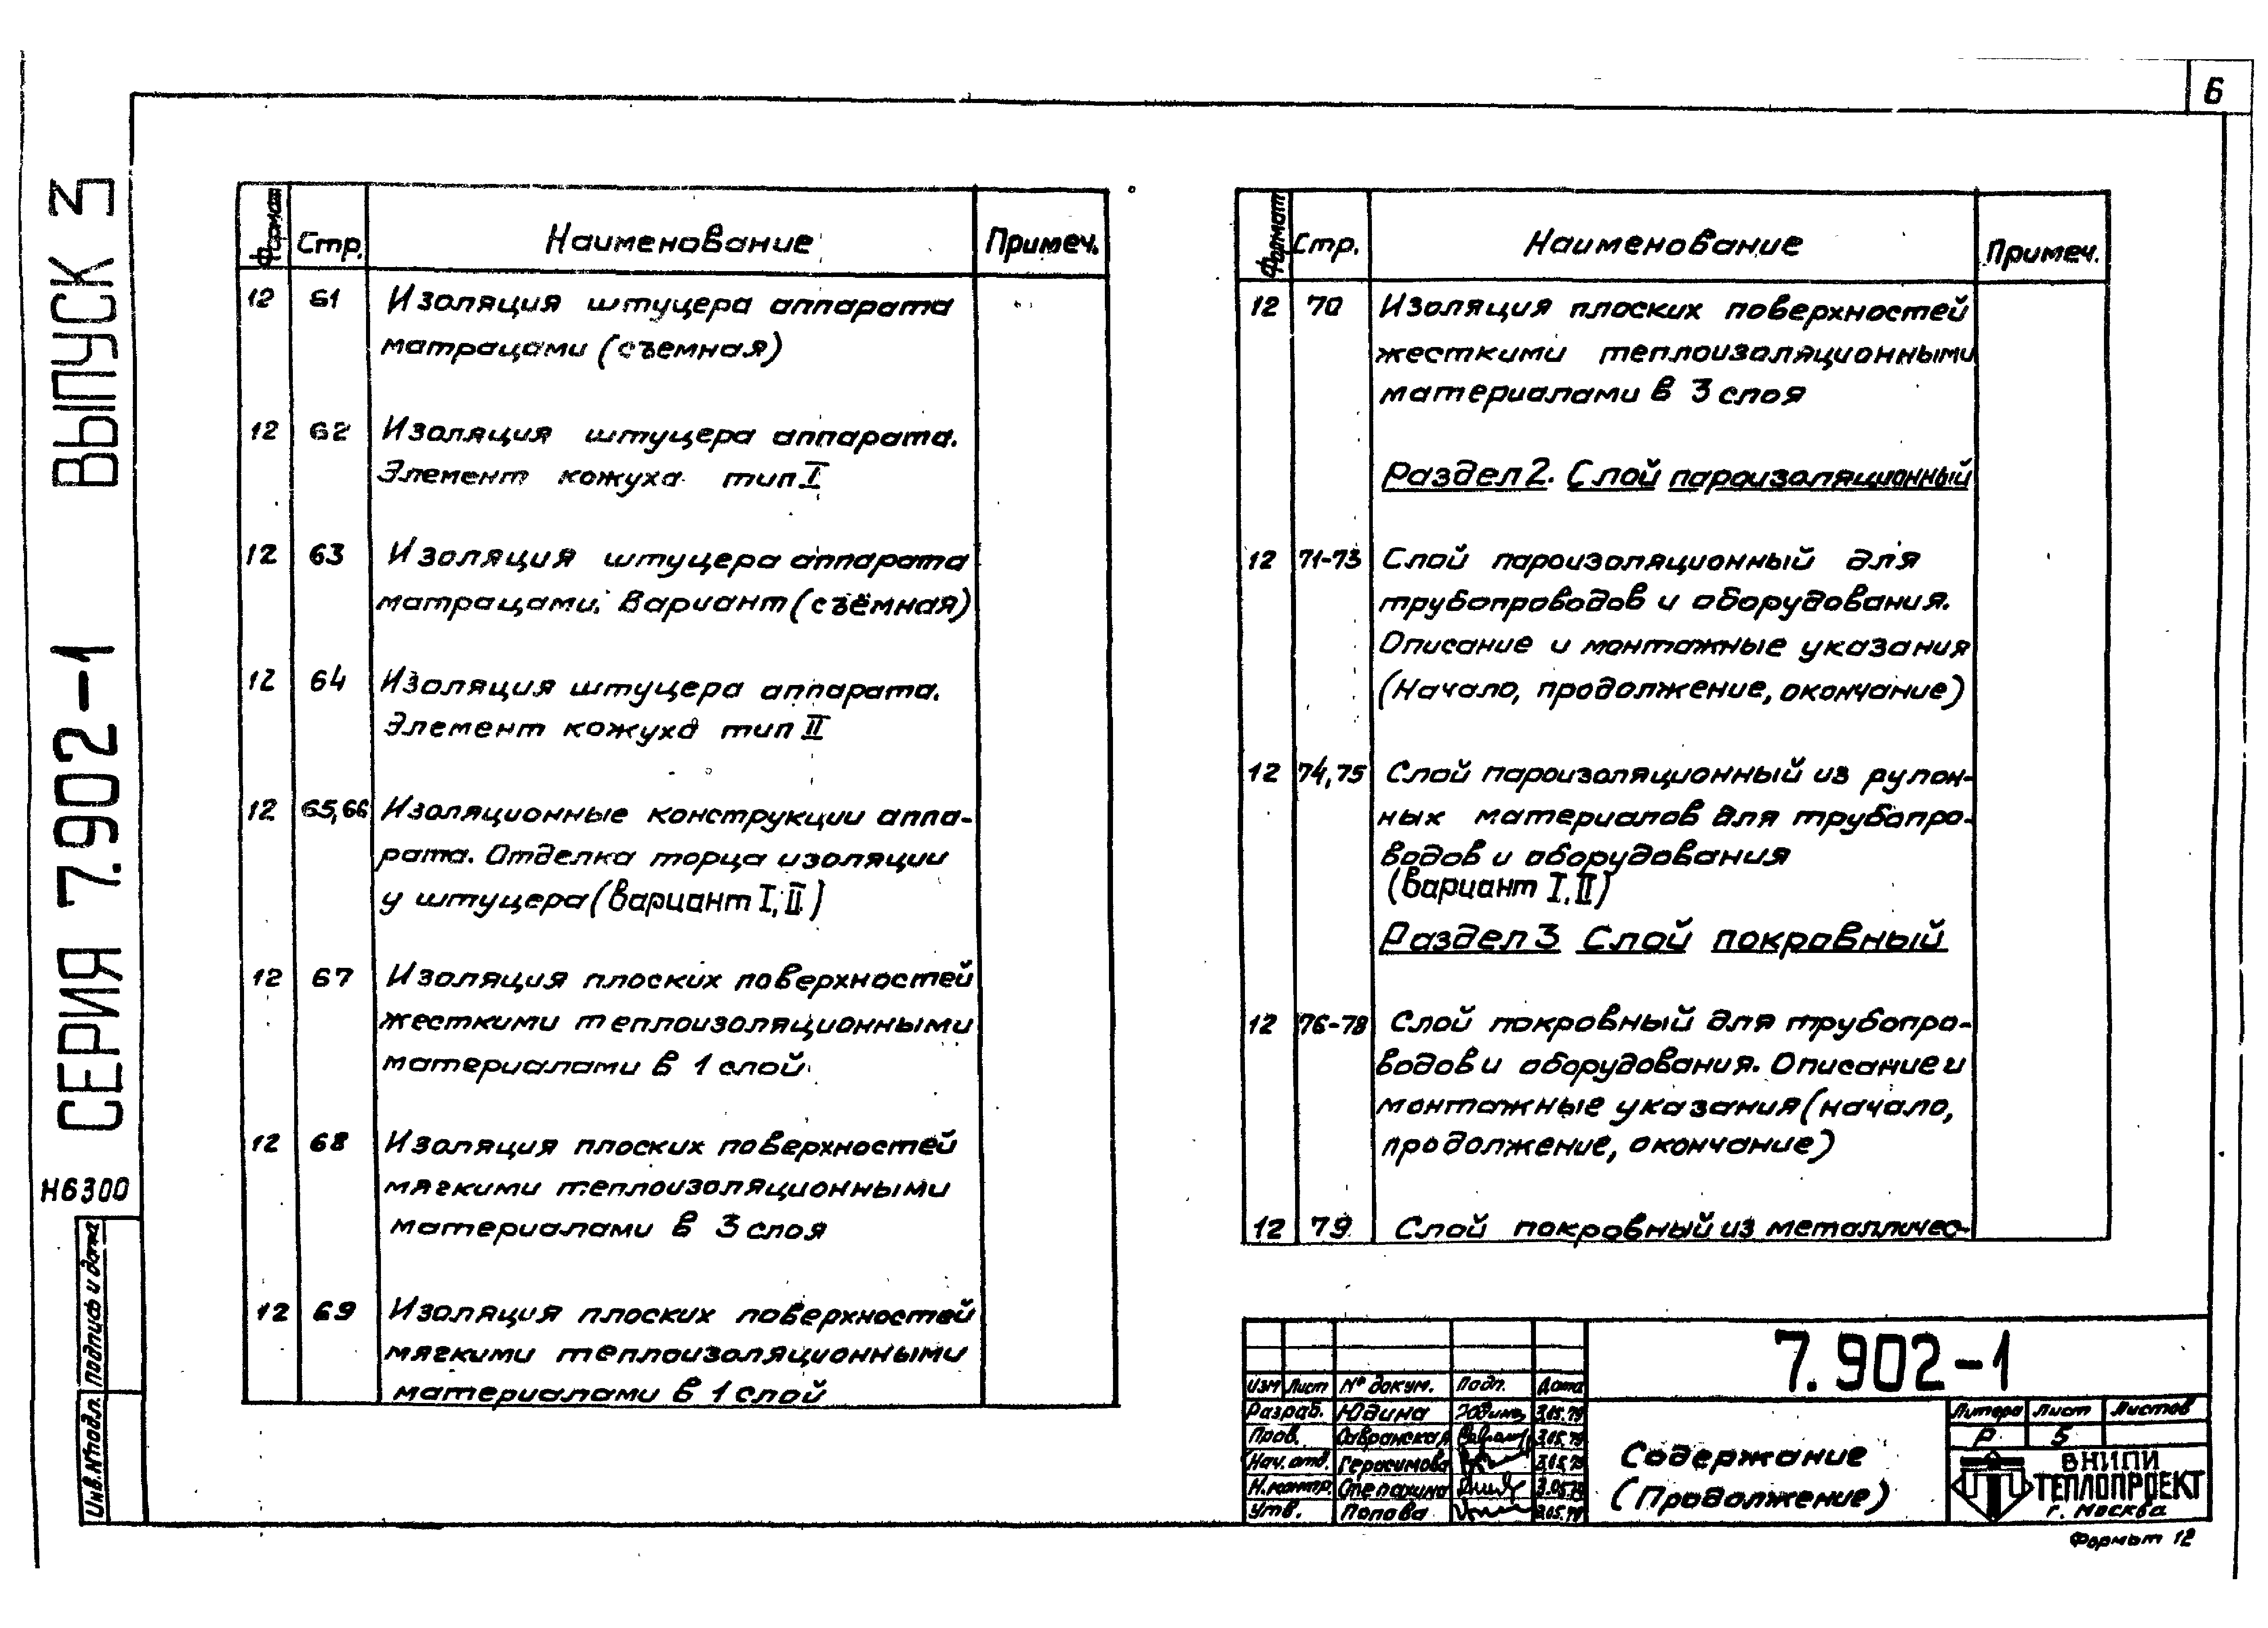 6
СЕРИЯ 7.902-1 ВЫПУСК 3
Н6300
Инв.№подл. Подпись и дата
Формат Стр. Наименование Примеч.
12 61 Изоляция штуцера аппарата
матрацами (съемная)
12 62 Изоляция штуцера аппарата.
Элемент кожуха тип I
12 63 Изоляция штуцера аппарата
матрацами. Вариант (съёмная)
12 64 Изоляция штуцера аппарата.
Элемент кожуха тип II
12 65,66 Изоляционные конструкции аппа-
рата. Отделка торца изоляции
у штуцера (вариант I, II)
12 67 Изоляция плоских поверхностей
жесткими теплоизоляционными
материалами в 1 слой
12 68 Изоляция плоских поверхностей
мягкими теплоизоляционными
материалами в 3 слоя
12 69 Изоляция плоских поверхностей
мягкими теплоизоляционными
материалами в 1 слой
Формат Стр. Наименование Примеч.
12 70 Изоляция плоских поверхностей
жесткими теплоизоляционными
материалами в 3 слоя
Раздел 2. Слой пароизоляционный
12 71-73 Слой пароизоляционный для
трубопроводов и оборудования.
Описание и монтажные указания
(Начало, продолжение, окончание)
12 74,75 Слой пароизоляционный из рулон-
ных материалов для трубопро-
водов и оборудования
(вариант I, II)
Раздел 3 Слой покровный
12 76-78 Слой покровный для трубопро-
водов и оборудования. Описание и
монтажные указания (начало,
продолжение, окончание)
12 79 Слой покровный из металличес-
7.902-1
Изм Лист № докум. Подп. Дата
Разраб. Юдина Юдина 3.05.79
Пров. Савранская 3.05.79
Нач. отд. Герасимова 3.05.79
Н.контр. Степанина 3.05.79
Утв. Попова 3.05.79
Содержание
(Продолжение)
Литера Лист Листов
Р 5
ВНИПИ
ТЕПЛОПРОЕКТ
г. Москва
Формат 12